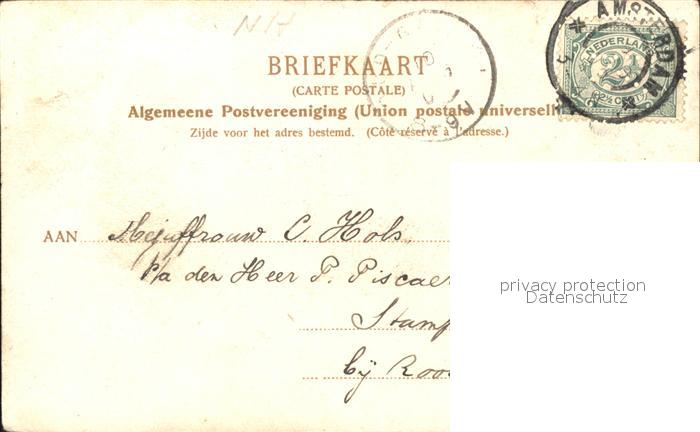 N/H
AMSTERDAM
NEDERLAND
2½
BRIEFKAART
(CARTE POSTALE)
Algemeene Postvereeniging (Union postale universelle
Zijde voor het adres bestemd. (Côté réservé à l'adresse.)
AAN Mejuffrouw C. Hols
p/a den Heer P. Piscaer
Stamp
bÿ Roo
privacy protection
Datenschutz